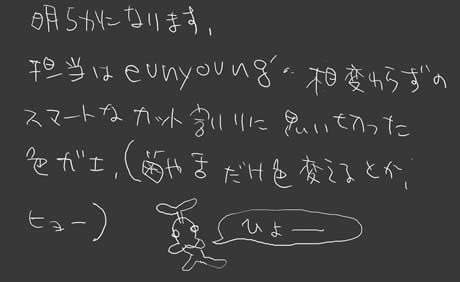 明らかになります。
担当はeunyoung。相変わらずの
スマートなカット割りに思い切った
色ガエ、(歯や舌だけ色変えるとか、
ヒュー)
ひょー